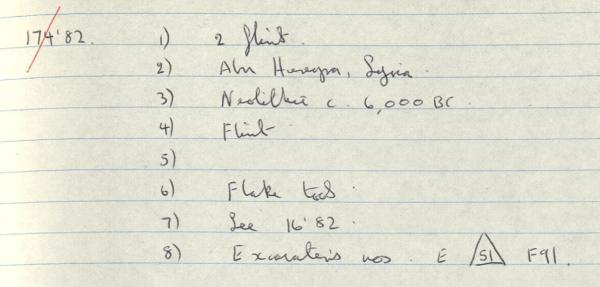 174'82. 1) 2 flint.
2) Abu Hureyra, Syria.
3) Neolithic c. 6,000 BC.
4) Flint
5)
6) Flake tools.
7) See 16'82.
8) Excavations nos. E 51 F91.